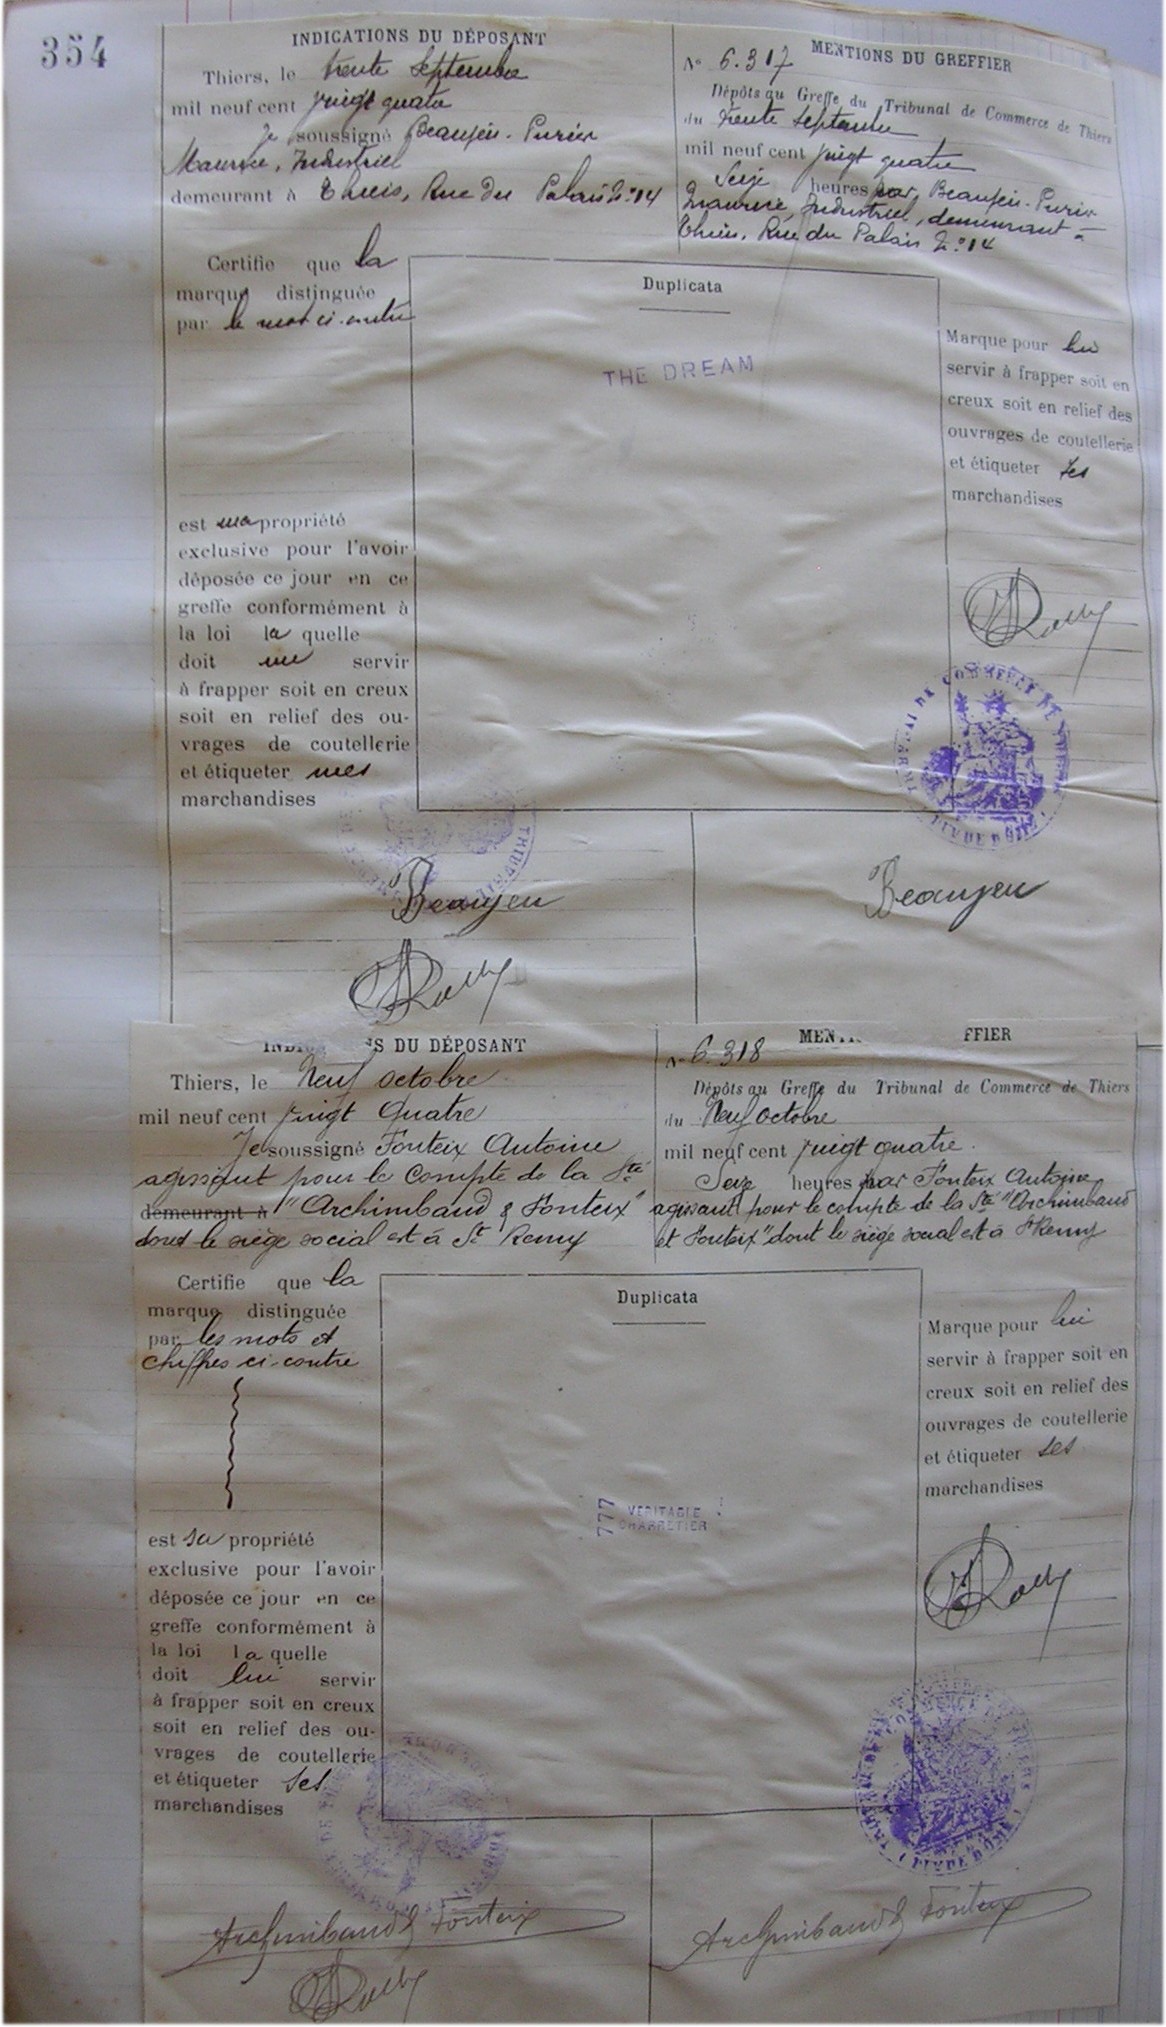 354
INDICATIONS DU DÉPOSANT
Thiers, le trente Septembre
mil neuf cent vingt quatre
Je soussigné Beaujeu-Purier
Maurice, Industriel
demeurant à Thiers, Rue du Palais N° 14
Certifie que la
marque distinguée
par le mot ci-contre
est ma propriété
exclusive pour l'avoir
déposée ce jour en ce
greffe conformément à
la loi la quelle
doit me servir
à frapper soit en creux
soit en relief des ou-
vrages de coutellerie
et étiqueter mes
marchandises
Duplicata
THE DREAM
MENTIONS DU GREFFIER
N° 6.317
Dépôts au Greffe du Tribunal de Commerce de Thiers
du trente septembre
mil neuf cent vingt quatre
Seize heures par, Beaujeu-Purier
Maurice, Industriel, demeurant à
Thiers, Rue du Palais N° 14
Marque pour lui
servir à frapper soit en
creux soit en relief des
ouvrages de coutellerie
et étiqueter ses
marchandises
TRIBUNAL DE COMMERCE DE THIERS
(PUY DE DÔME)
Beaujeu
Beaujeu
INDI S DU DÉPOSANT
Thiers, le Neuf octobre
mil neuf cent vingt Quatre
Je soussigné Fonteix Antoine
agissant pour le compte de la Sté
demeurant à "Archimbaud & Fonteix"
dont le siège social est à St Remy
Certifie que la
marque distinguée
par les mots et
chiffres ci-contre
est sa propriété
exclusive pour l'avoir
déposée ce jour en ce
greffe conformément à
la loi la quelle
doit lui servir
à frapper soit en creux
soit en relief des ou-
vrages de coutellerie
et étiqueter ses
marchandises
Duplicata
777 VERITABLE
CHARRETIER
MEN FFIER
N° 6.318
Dépôts au Greffe du Tribunal de Commerce de Thiers
du Neuf octobre
mil neuf cent vingt quatre
Seize heures par Fonteix Antoine
agissant pour le compte de la Sté "Archimbaud
et Fonteix" dont le siège social est à St Remy
Marque pour lui
servir à frapper soit en
creux soit en relief des
ouvrages de coutellerie
et étiqueter ses
marchandises
TRIBUNAL DE COMMERCE DE THIERS
(PUY DE DÔME)
Archimbaud & Fonteix
Archimbaud & Fonteix